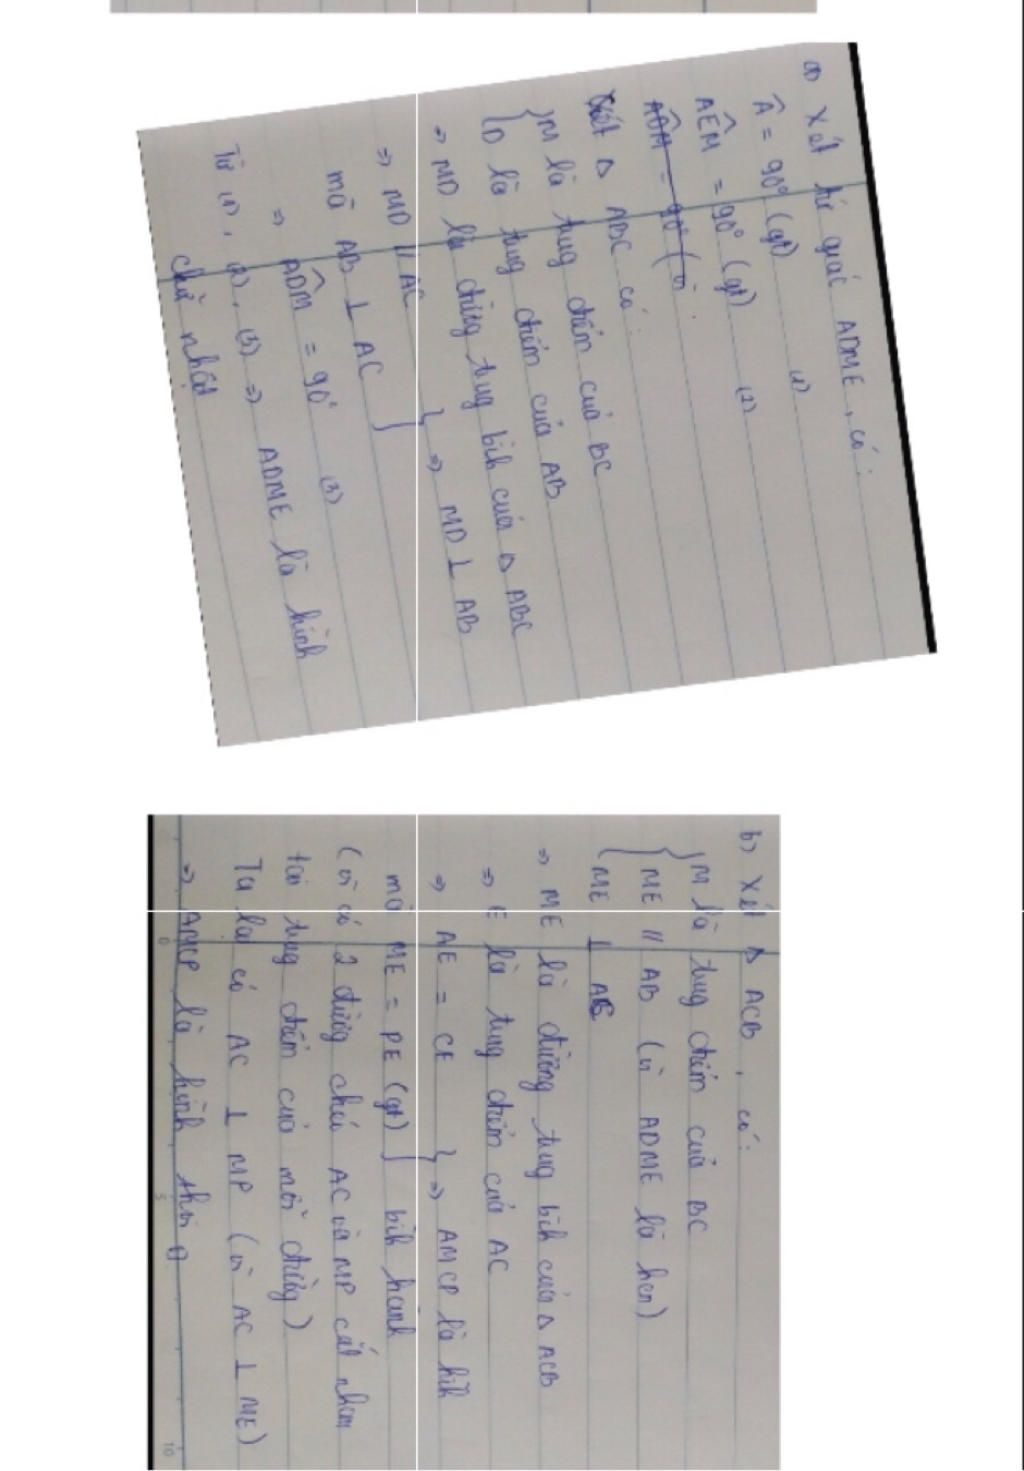 a) Xét tứ giác ADME, có:
Â = 90° (gt) (1)
AÊM = 90° (gt) (2)
AD̂M = 90° (vì
Xét Δ ABC có:
{ M là tung điểm của BC
D là tung điểm của AB
=> MD là đường tung bình của Δ ABC
=> MD // AC } => MD ⊥ AB
mà AB ⊥ AC
=> AD̂M = 90° (3)
Từ (1), (2), (3) => ADME là hình
chữ nhật
b) Xét Δ ACB, có:
{ M là tung điểm của BC
ME // AB (vì ADME là hcn)
ME ⊥ AC
=> ME là đường tung bình của Δ ACB
=> E là tung điểm của AC
=> AE = CE } => AMCP là hìh
mà ME = PE (gt) bìh hành
(vì có 2 đường chéo AC và MP cắt nhau
tại tung điểm của mỗi đường)
Ta lại có AC ⊥ MP (vì AC ⊥ ME)
=> AMCP là hình thoi
0 5 10